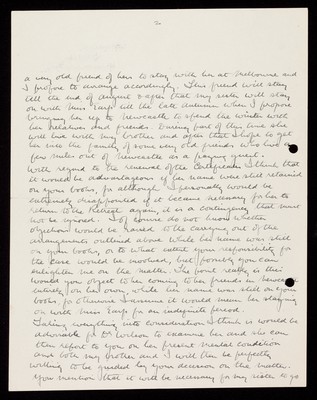 a very old friend of hers to stay with her at Melbourne and
I propose to arrange accordingly. This friend will stay
till the end of August & after that my sister will stay
on with Miss Earp till the late Autumn when I propose
bringing her up to Newcastle to spend the winter with
her relatives and friends. During part of this time she
will live with my brother and after that I hope to get
her into the family of some very old friends who live a
few miles out of Newcastle as a paying guest.
With regard to the renewal of the Certificate I think that
it would be advantageous if her name were still retained
on your books, for although I personally would be
extremely disappointed if it became necessary for her to
return to the Retreat again, it is a contingency that must
not be ignored. I of course do not know whether
objections would be raised to the carrying out of the
arrangements outlined above while her name was still
on your books, or to what extent your responsibility for
the case would be involved, but possibly you can
enlighten me on the matter. The point really is this
would you object to her coming to her friends in Newcastle
entirely on her own, while her name was still on your
books, for otherwise I assume it would mean her staying
on with Miss Earp for an indefinite period.
Taking everything into consideration I think it would be
advisable for Dr Wilson to examine her and she can
then report to you on her present mental condition
and both my brother and I will then be perfectly
willing to be guided by your decision on the matter.
You mention that it will be necessary for my sister to go